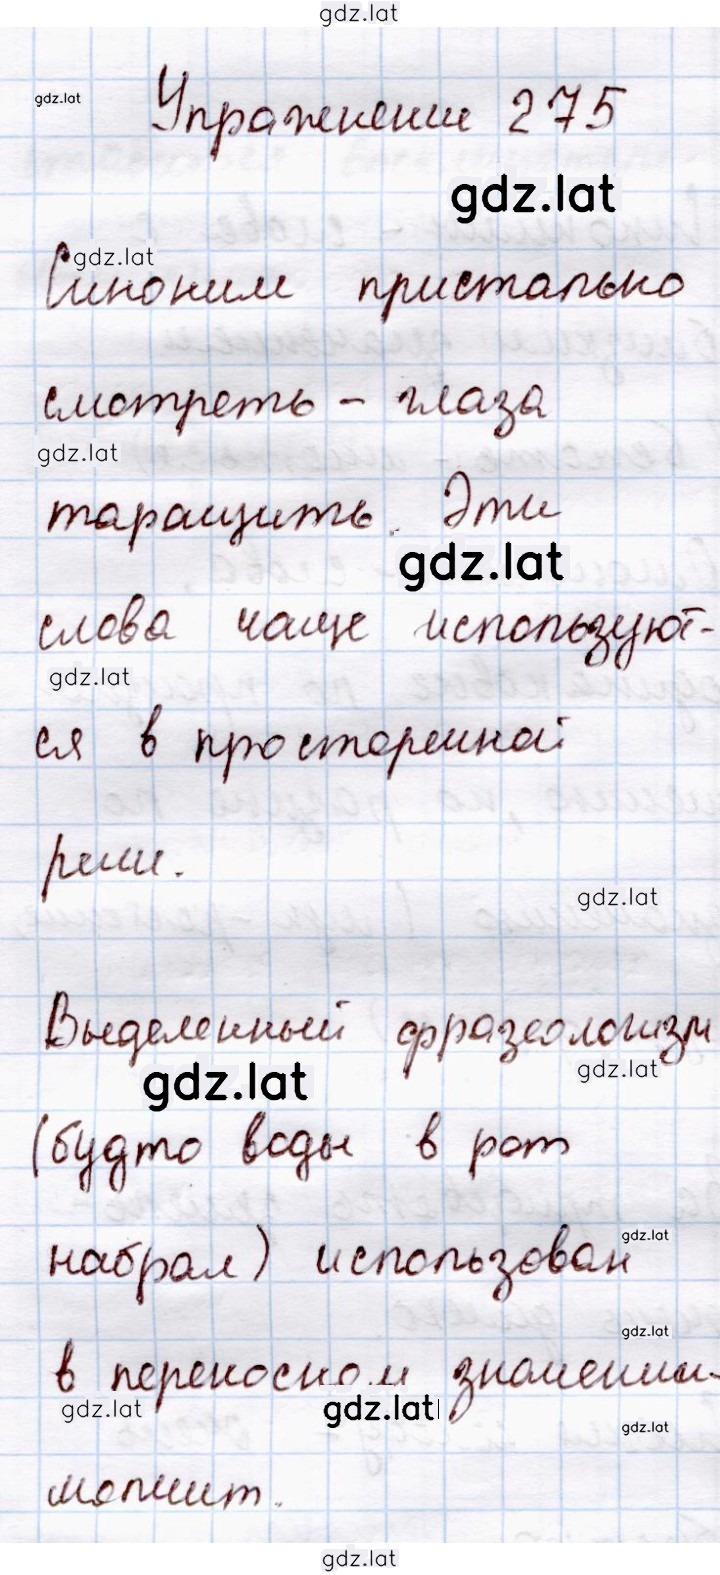 gdz.lat
gdz.lat
Упражнение 275
gdz.lat
gdz.lat
Синоним пристально
смотреть - глаза
gdz.lat
таращить. Эти
gdz.lat
слова чаще используют-
gdz.lat
ся в просторечной
речи.
gdz.lat
Выделенный фразеологизм
gdz.lat
gdz.lat
(будто воды в рот
gdz.lat
набрал) использован
gdz.lat
в переносном значении-
gdz.lat
gdz.lat
gdz.lat
молчит.
gdz.lat